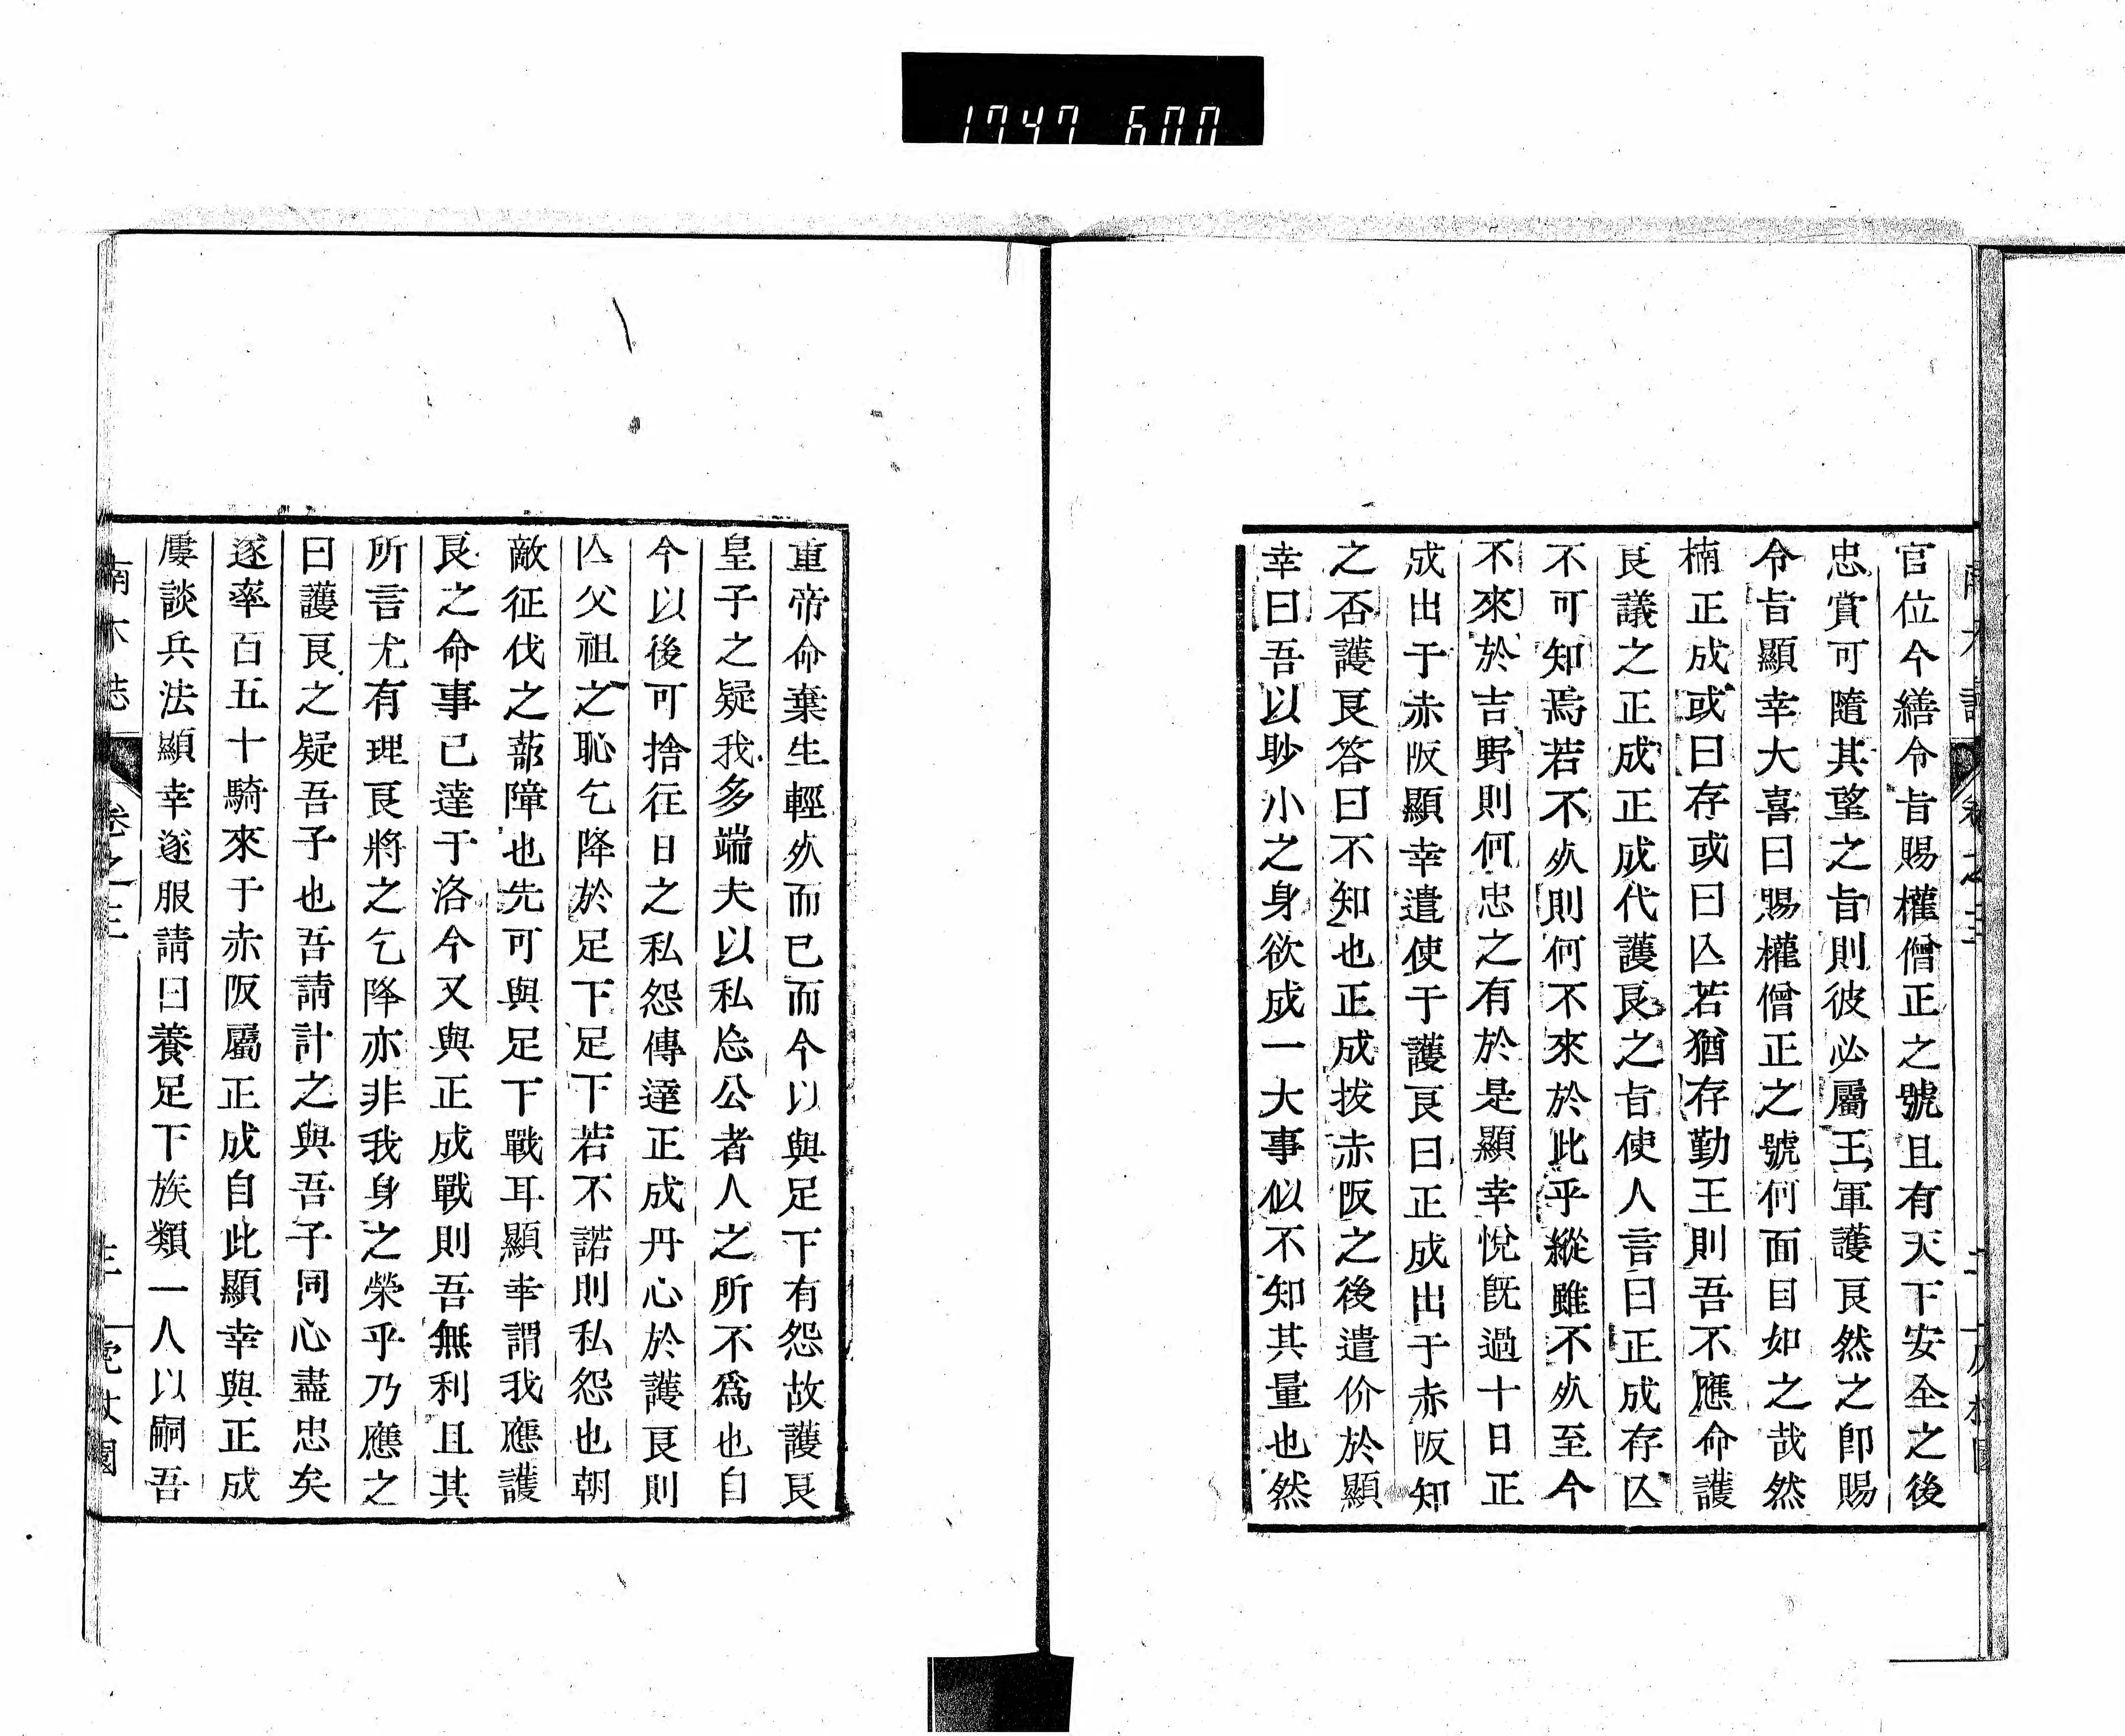 1747 600
官位今繕令旨賜權僧正之號且有天下安全之後
忠賞可隨其望之旨則彼必屬王軍護良然之卽賜
令旨顯幸大喜曰賜權僧正之號何面目如之哉然
楠正成或曰存或曰亾若猶存勤王則吾不應命護
良議之正成正成代護良之旨使人言曰正成存亾
不可知焉若不㱔則何不來於此乎縱雖不㱔至今
不來於吉野則何忠之有於是顯幸悅旣過十日正
成出于赤阪顯幸遣使于護良曰正成出于赤阪知
之否護良答曰不知也正成拔赤阪之後遣价於顯
幸曰吾以眇小之身欲成一大事似不知其量也然
重帝命棄生輕㱔而已而今以與足下有怨故護良
皇子之疑我多端夫以私忘公者人之所不爲也自
今以後可捨往日之私怨傳達正成丹心於護良則
亾父祖之恥乞降於足下足下若不諾則私怨也朝
敵征伐之蔀障也先可與足下戰耳顯幸謂我應護
良之命事已達于洛今又與正成戰則吾無利且其
所言尤有理良將之乞降亦非我身之榮乎乃應之
曰護良之疑吾子也吾請計之與吾子同心盡忠矣
遂率百五十騎來于赤阪屬正成自此顯幸與正成
屢談兵法顯幸遂服請曰養足下族類一人以嗣吾
南木誌
卷之三